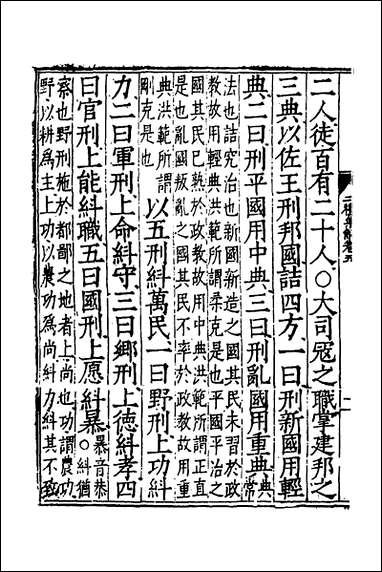 二人徒百有二十人○大司冦之職掌建邦之
三典以佐王刑邦國詰四方一曰刑新國用輕
典二曰刑平國用中典三曰刑亂國用重典典常
法也詰究治也新國新造之國其民未習於政
教故用輕典洪範所謂柔克是也平國平治之
國其民已熟於政教故用中典洪範所謂正直
是也亂國叛亂之國其民不率於政教故用重
典洪範所謂
剛克是也
以五刑糾萬民一曰野刑上功糾
力二曰軍刑上命糾守三曰郷刑上德糾孝四
曰官刑上能糾職五曰國刑上愿糾暴暴音恭○糾猶
察也野刑施於都鄙之地者上尚也功謂農功
野以耕為主上功以農功為尚糾力糾其不致